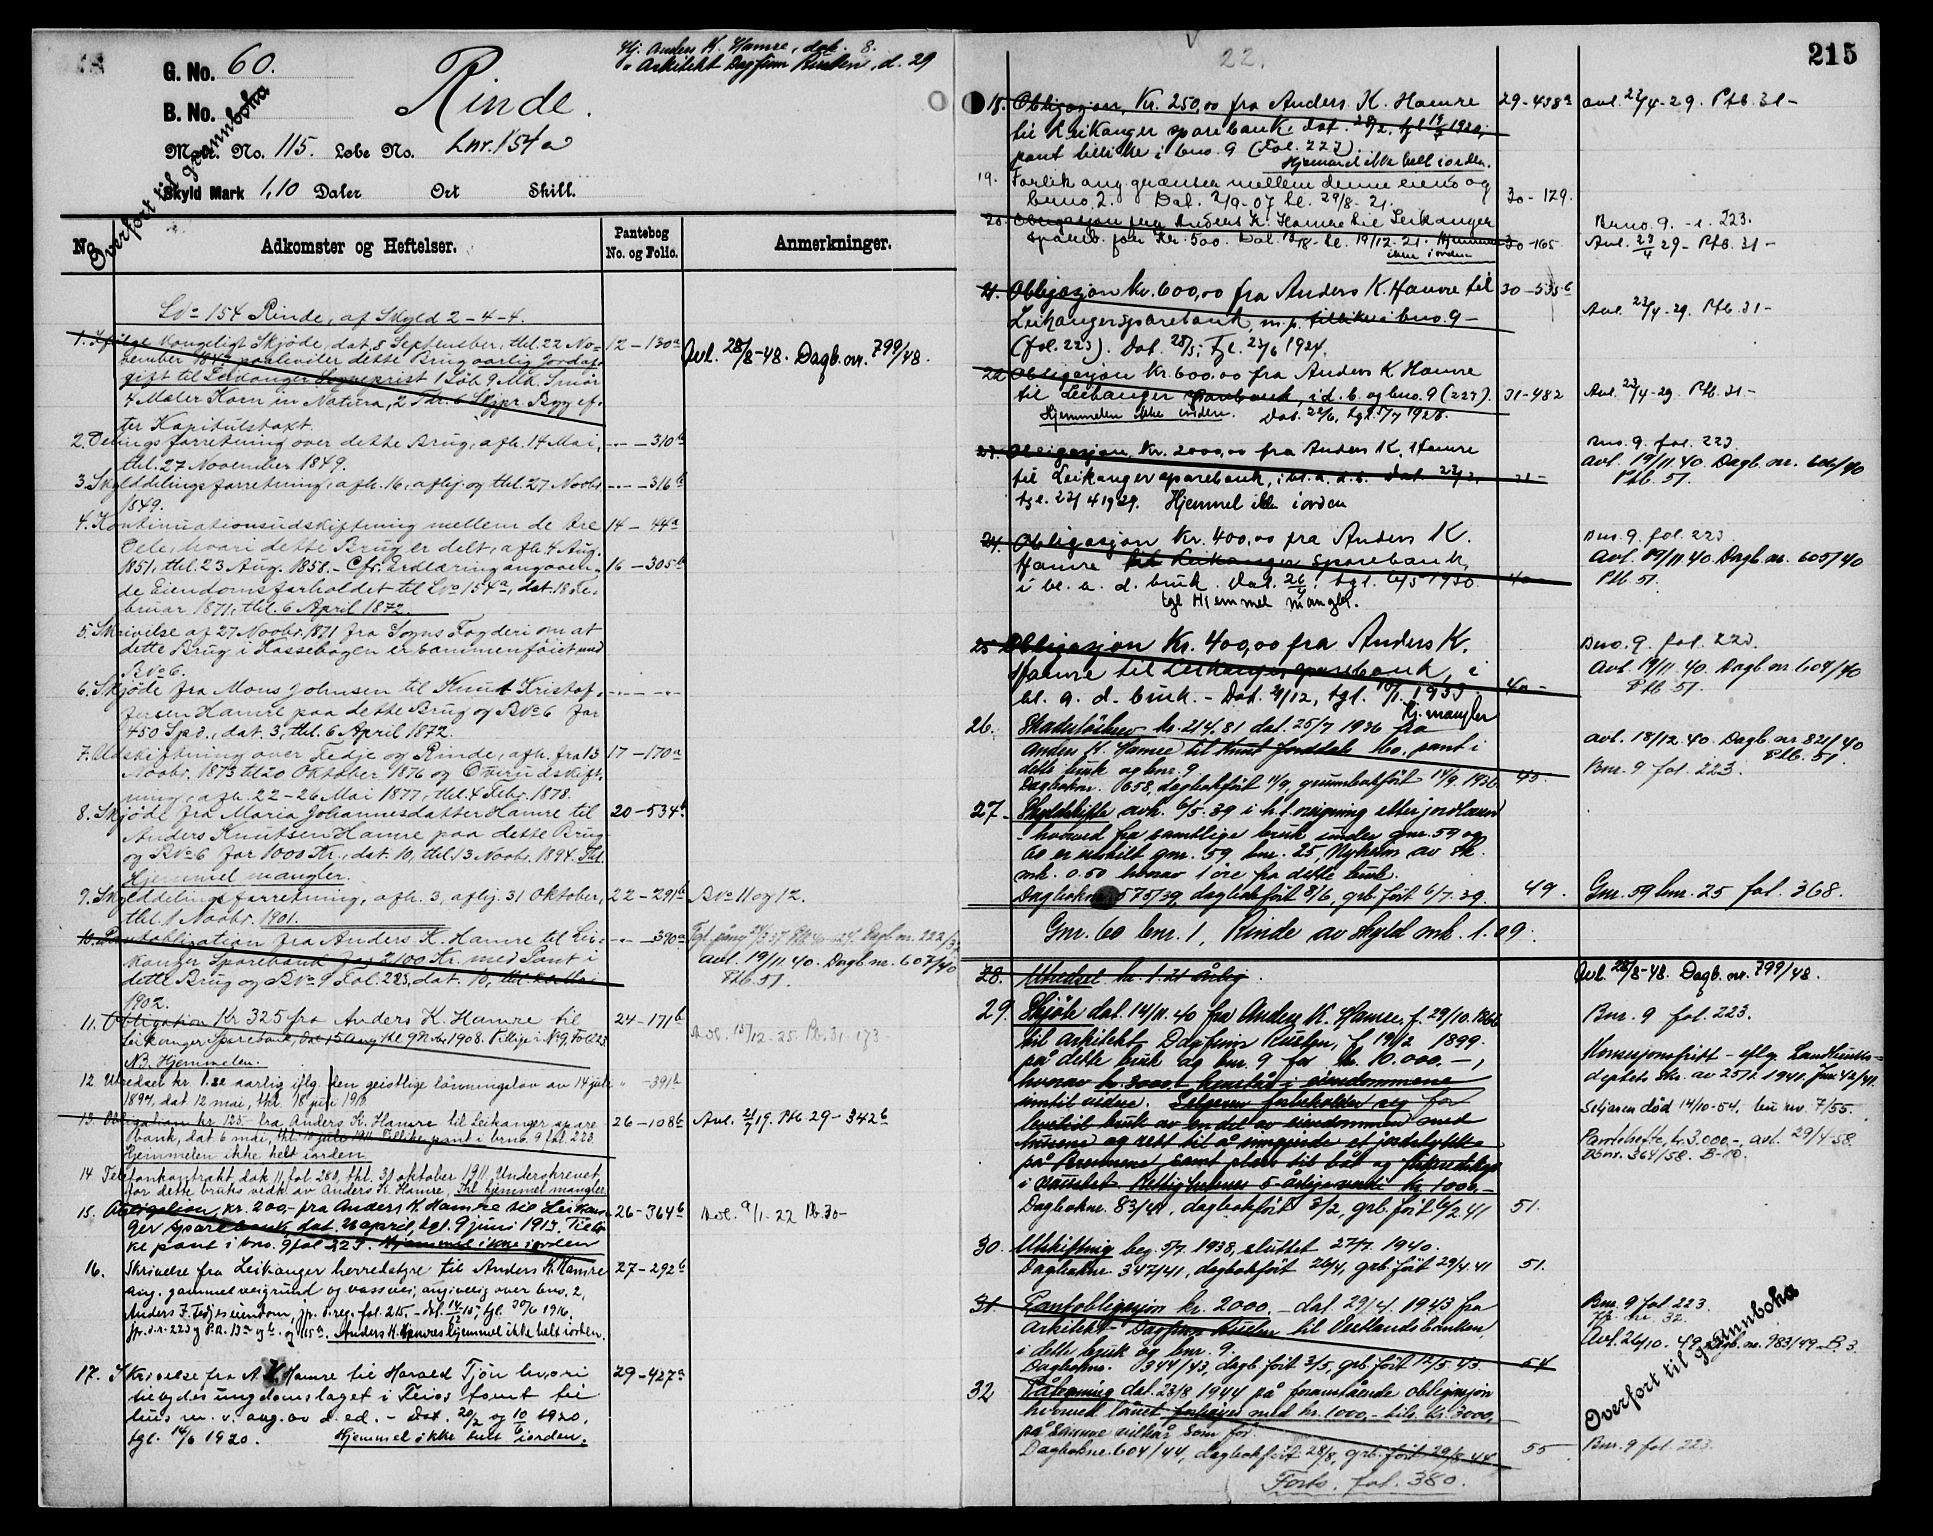 G. No. 60.
B. No.
Matr. No. 115. Løbe No. Lnr. 154a
Skyld Mark 1,10 Daler Ort Skill.
Rinde.
Hj. Anders K. Hamre, dok. 8.
" Arkitekt Dagfinn , d. 29
Overført til grunnboka
No. Adkomster og Heftelser. Pantebog No. og Folio. Anmerkninger.
LNo 154 Rinde, af Skyld 2-4-4.
1. Ifølge Kongeligt Skjøde, dat. 8 September, thl. 22 No- 12-130a
vember 1842 paahviler dette Brug aarlig Jordaf- Avl. 28/8-48. Dagb. nr. 799/48.
gift til Leikanger 1 Løb 9 Mk. Smør
4 Mæler Korn in Natura, 2 Tdr. 6 Skjpr. Byg ef-
ter Kapitulstaxt.
2. Delingsforretning over dette Brug, afh. 14 Mai, -"- -310b
thl. 27 November 1849.
3. Skylddelingsforretning, afh. 16, aflj. og thl. 27 Novbr. -"- -316b
1849.
4. Kontinuationsudskiftning mellem de tre 14-44a
Dele, hvori dette Brug er delt, afh. 4 Aug.
1851, thl. 23 Aug. 1858. - Cfr. Erklæring angaaen- 16-305b
de Eiendomsforholdet til LNo 154a, dat. 18 Fe-
bruar 1871, thl. 6 April 1872.
5. Skrivelse af 27 Novbr. 1871 fra Sogns Fogderi om at
dette Brug i Kassebogen er sammenføiet med
BNo 6.
6. Skjøde fra Mons Johnsen til Knut Kristof- -"- -"-
fersen Hamre paa dette Brug og BNo 6 for
450 Spd., dat. 3, thl. 6 April 1872.
7. Udskiftning over Tedje og Rinde, afh. fra 13 17-170a
Novbr. 1873 til 20 Oktober 1876 og Overudskift-
ning, afh. 22-26 Mai 1877, thl. 4 Febr. 1878.
8. Skjøde fra Maria Johannesdatter Hamre til 20-534b
Anders Knutsen Hamre paa dette Brug
og BNo 6 for 1000 Kr., dat. 10, thl. 13 Novbr. 1894. Thl.
Hjemmel mangler.
9. Skylddelingsforretning, afh. 3, aflj. 31 Oktober, 22-291b BNo 11 og 12.
thl. 1 Novbr. 1901.
10. Pantobligation fra Anders K. Hamre til Lei- -"- -390a
kanger Sparebank for 2100 Kr. med Pant i Avl. 19/11 40. Dagb. nr. 607/40
dette Brug og BNo 9 Fol. 223, dat. 10, thl. Mai Ptb. 51.
1902.
11. Obligation Kr 325 fra Anders K. Hamre til 24-171b
Leikanger Sparebank, dat 15 Aug thl 9 Novbr. 1908. Tillige i No 9, Fol. 223 Avl. 15/12-25. Pb. 31-173-
NB. Hjemmelen.
12. Utredsel kr. 1.22 aarlig iflg. den geistlige lønningslov av 14 juli " -391b
1897, dat 12 mai, thl. 18 juli 1910
13. Obligation kr 125 fra Anders K. Hamre til Leikanger spare- 26-108b Avl. 2/7 19. Ptb 29-342b
bank, dat 6 mai, thl. 10 juli 1911. Tillike pant i brno. 9 fol. 223
Hjemmelen ikke helt iorden
14 Telefonkontrakt, dok 11, fol 280, thl. 31 oktober 1911. Underskrevet
for dette bruks vedk. av Anders K. Hamre, thl. hjemmel mangler
15. Obligation, kr. 200,- fra Anders K. Hamre til Leikan- 26-364b Avl. 9/1-22 Pb. 30-
ger sparebank, dat. 26 april, tgl. 9 juni 1913. Tilli-
ke pant i bno. 9 fol 223. Hjemmel ikke iorden
16. Skrivelse fra Leikanger herredstyre til Anders K. Hamre 27-292b
ang. gammel veigrund og vassvei, angivelig over bno. 2,
Anders J. Tedjes eiendom, jfr. d. reg. fol. 215. - dat. 14/12 15, tgl. 30/6 1916.
Anders K. Hamres hjemmel ikke helt iorden.
17. Skrivelse fra A K Hamre til Harald Tjøn hvori 29-427a
tilbydes ungdomslaget i tomt til
hus m. v. ang. av d. ed. - Dat. 20/2 og 10/6 1920,
tgl. 14/6 1920. Hjemmel ikke helt iorden.
22. 215
18. Obligasjon, Kr. 250,00 fra Anders K. Hamre 29-438a Avl. 23/4-29. Ptb. 31-
til Leikanger sparebank. dat. 28/2, tgl 1920,
pant tillike i bno. 9 (Fol. 223).
Hjemmel ikke helt iorden.
19. Forlik ang. grænsen mellem denne eiend. og
bruno 2. Dat. 2/9-07 tl. 29/8-21. 30-129.
20. Obligasjon fra Anders K. Hamre til Leikanger Bruno. 9. - f. 223.
spareb. for Kr. 500. Dat 18/8- tl. 19/12-21. Hjemmel 30-165 Avl. 23/4 29- Ptb. 31-
ikke iorden
21. Obligasjon kr. 600,00 fra Anders K. Hamre til 30-535b
Leikanger sparebank m. p. tillike i bno. 9- Avl. 23/4-29. Ptb. 31-
(fol. 223). Dat. 28/5, tgl. 23/6 1924.
22. Obligasjon kr. 600.00 fra Anders K. Hamre
til Leikanger sparebank, i d. b. og bno. 9 (223). 31-482 Avl. 23/4-29 Ptb. 31-
Hjemmelen ikke iorden. Dat. 22/6, tgl. 5/7 1928.
23. Obligasjon, Kr. 2000,00 fra Anders K. Hamre Bno. 9. fol. 223
til Leikanger sparebank, i bl. a. d. b. Dat 22/3, 31- Avl. 19/11 40. Dagb. nr. 606/40
tgl. 22/4 1929. Hjemmel ikke iorden Ptb. 51.
24. Obligasjon Kr. 400,00 fra Anders K. Bno. 9. fol. 223
Hamre til Leikanger Sparebank, Avl. 19/11 40. Dagb. nr. 605/40
i bl. a. d. bruk. Dat. 26/4, tgl. 6/5 1930. 40- Ptb. 51.
tgl Hjemmel mangler.
25 Obligasjon Kr. 400,00 fra Anders K. Bno. 9. fol. 223
Hamre til Leikanger sparebank, i Avl. 19/11 40. Dagb. nr. 604/40
bl. a. d. bruk. - Dat. 4/12, tgl. 1933. 40- Ptb. 51.
Hj. mangler
26. Skadesløsbrev kr. 214.81 dat. 25/7 1936 fra
Anders K. Hamre til Knut , pant i Avl. 18/12 40. Dagb. nr 821/40
dette bruk og bnr. 9. Ptb. 51.
Dagboknr. 1658, dagbokført 11/9, grunnbokført 14/9 1936 45. Bnr. 9 fol. 223.
27. Skyldskifte avh. 6/5. 39 i h.t. reisning etter jordloven
hvorved fra samtlige bruk under gnr. 59 og
60 er utskilt gnr. 59 bnr. 25, Nyheim av sk.
mk. 0.50 hvorav 1 øre fra dette bruk.
Dagboknr. 575/39, dagbokført 8/6, grb. ført 6/7. 39. 49. Gnr. 59 bnr. 25 fol. 368.
Gnr. 60 bnr. 1, Rinde av skyld mk. 1.09.
28. Utredsel kr. 1.21 årlig. Avl. 28/8-48. Dagb. nr. 799/48.
29. Skjøte dat. 14/11. 40 fra Anders K. Hamre, f. 29/10. 1866 Bnr. 9 fol. 223.
til arkitekt Dagfinn , f. 19/12 1899.
på dette bruk og bnr. 9 for kr. 10.000.-, Konsesjonsfritt - eflg. Landbruks-
hvorav kr. 3000 henstår i eiendommene deptets skr. av 25/2 1941. Jnr. 42/41.
inntil videre. Selgeren forbeholder seg for Seljaren død 14/10-54, 7/55.
levetid bruk av en del av eiendommen med Pantehefte, kr. 3.000.-, avl. 29/4-58.
husene og rett til å unngjerde et jordstykke Dbnr. 364/58. B-10.
på , samt plass til båt og fiskeredskap
i naustet. Rettighetenes 5-årige verdi Kr. 1000,-
Dagboknr. 83/41, dagbokført 3/2, grb. ført 6/2 41 51.
30. Utskifting beg. 5/7. 1938, sluttet 27/7. 1940.
Dagboknr. 347/41, dagbokført 26/4, grb. ført 29/4. 41 51.
31 Pantobligasjon kr. 2000,- dat. 29/4. 1943 fra Bnr. 9 fol 223.
arkitekt Dagfinn til Vestlandsbanken Hp. nr. 32.
i dette bruk og bnr. 9. Avl. 26/10-49 Dagb. nr. 983/49-B 3.
Dagboknr. 344/43, dagb. ført 3/5, grb. ført 12/5 43. 54
32 Påtegning dat. 23/8 1944 på foranstående obligasjon
hvorved lånet forhøyes med kr. 1000,- til kr. 3000,
på samme vilkår som før.
Dagboknr. 604/44, dagbokført 28/8, grb. ført 29/8. 44 55 Bnr. 9 fol. 223.
Forts. fol. 380.
Overført til grunnboka